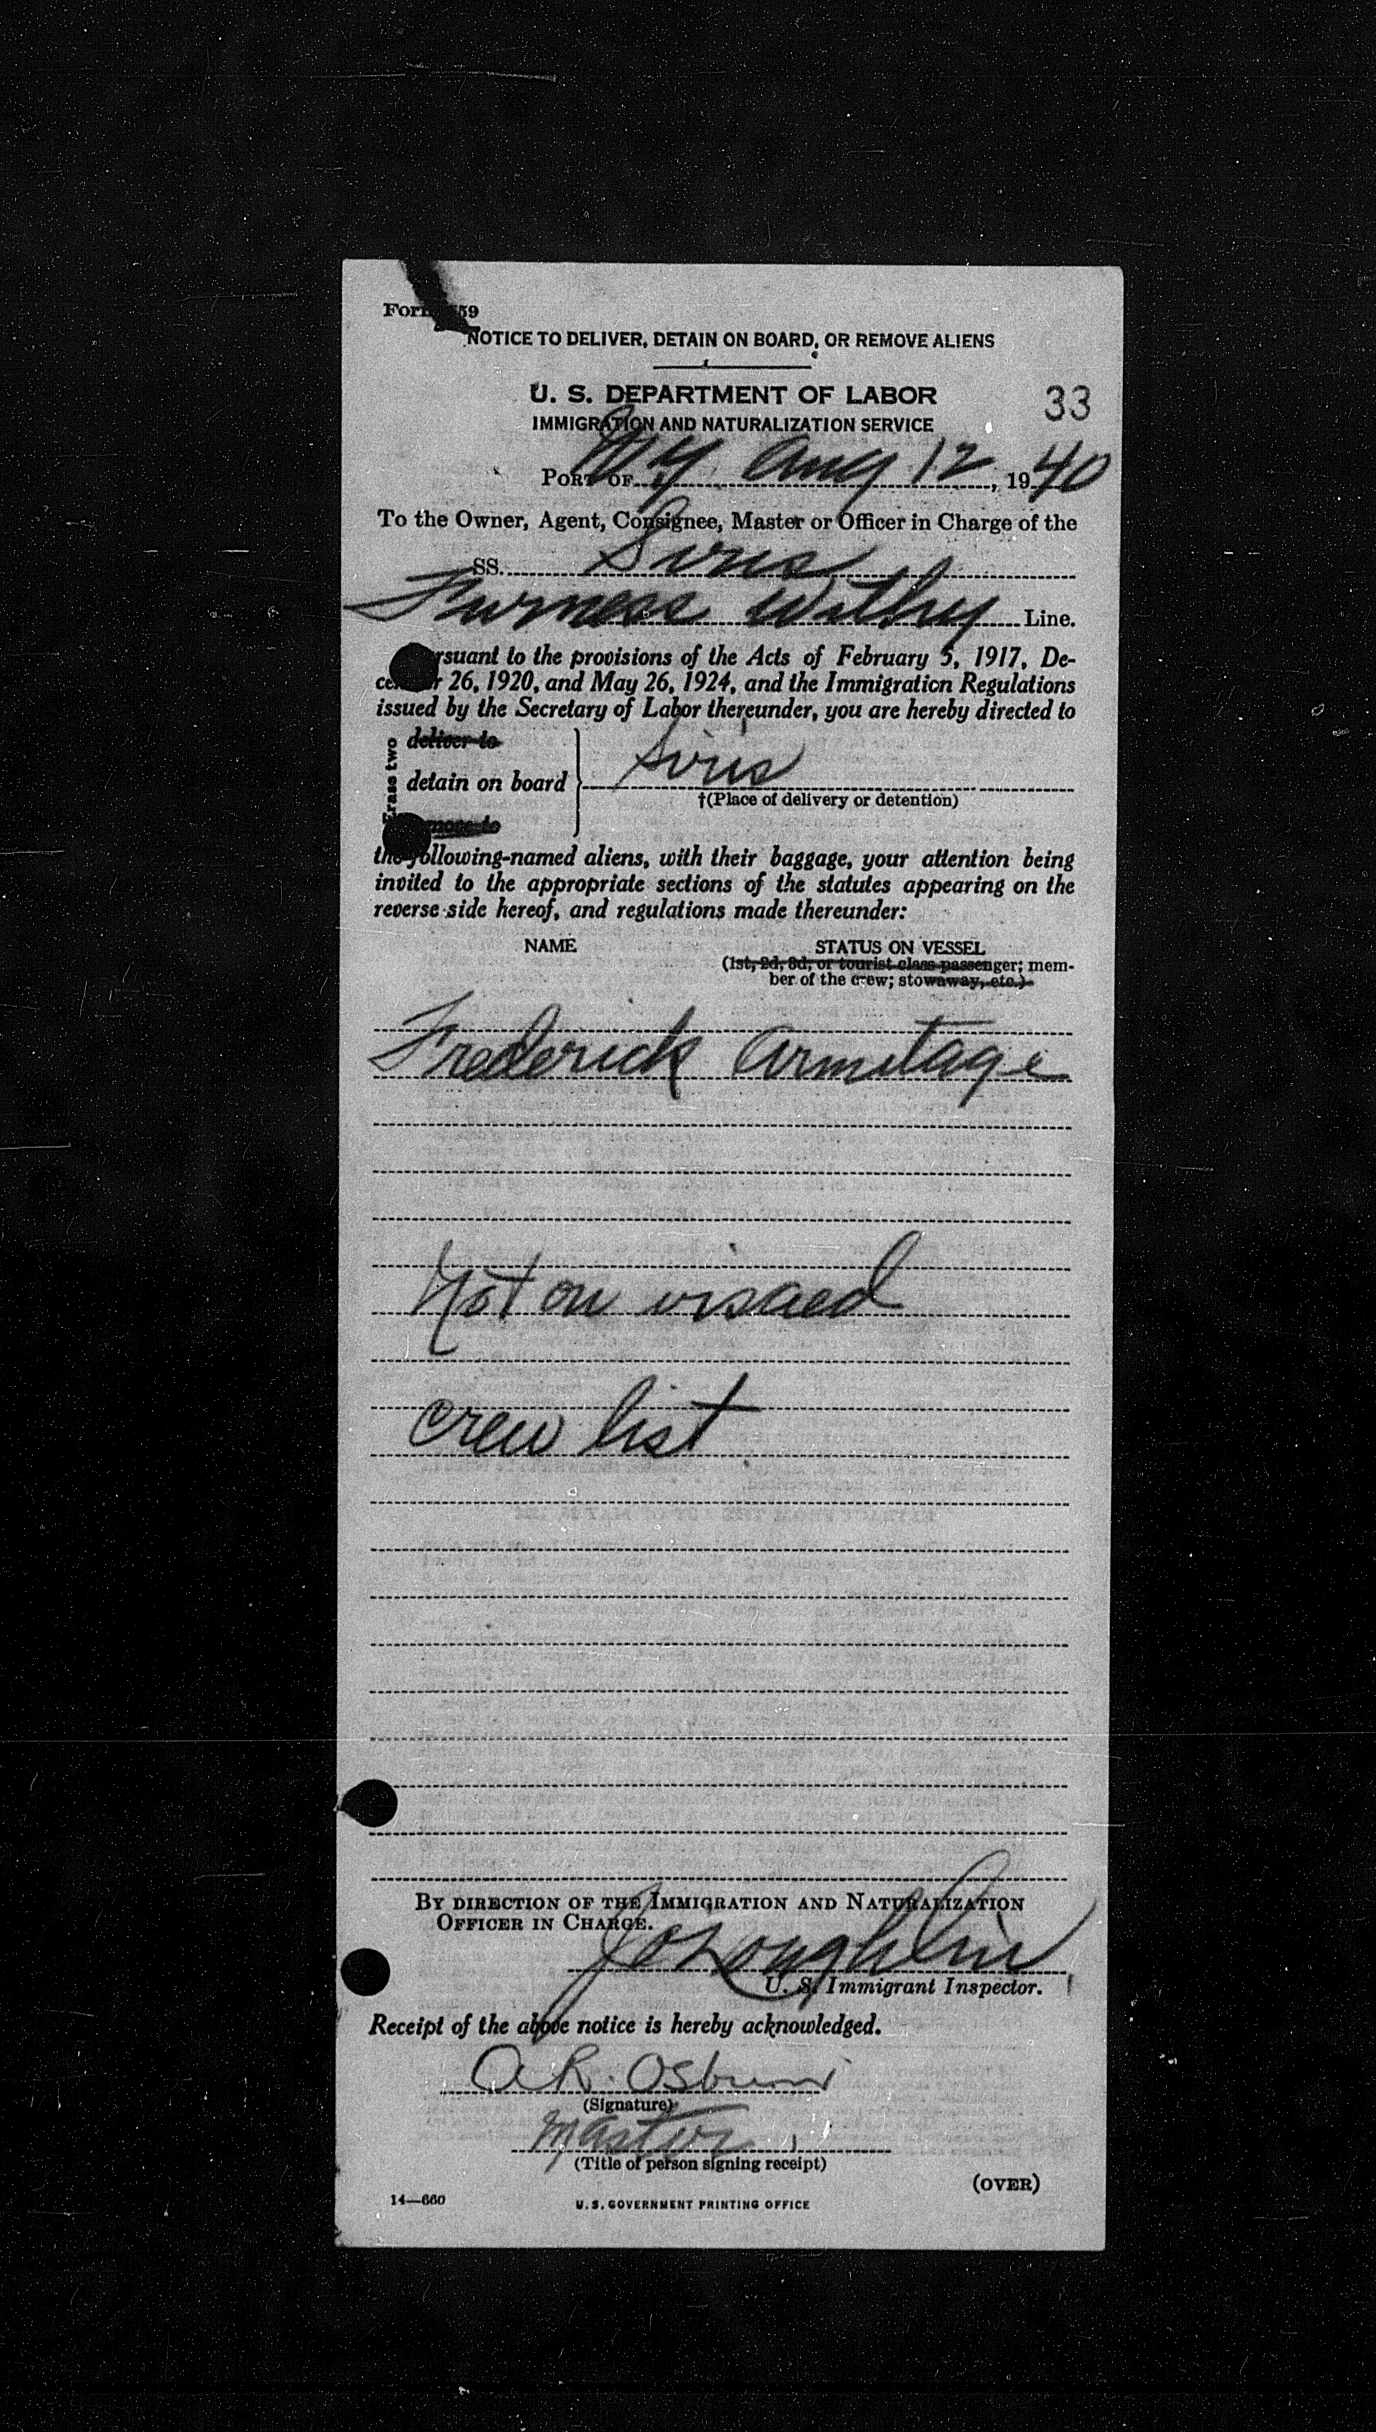 NOTICE TO DELIVER, DETAIN ON BOARD, OR REMOVE ALIENS
U. S. DEPARTMENT OF LABOR
33
IMMIGRATION AND NATURALIZATION SERVICE
PORT OF NY Aug 12, 1940
To the Owner, Agent, Consignee, Master or Officer in Charge of the
SS. Siris
Furness Withy Line.
rsuant to the provisions of the Acts of February 5, 1917, De-
ce r 26, 1920, and May 26, 1924, and the Immigration Regulations
issued by the Secretary of Labor thereunder, you are hereby directed to
Erase two
deliver to
detain on board Siris
†(Place of delivery or detention)
move to
the following-named aliens, with their baggage, your attention being
invited to the appropriate sections of the statutes appearing on the
reverse side hereof, and regulations made thereunder:
NAME STATUS ON VESSEL
(1st, 2d, 3d, or tourist class passenger; mem-
ber of the crew; stowaway, etc.)
Frederick Armitage
Not on visaed
crew list
BY DIRECTION OF THE IMMIGRATION AND NATURALIZATION
OFFICER IN CHARGE.
J O'Loughlin
U. S. Immigrant Inspector.
Receipt of the above notice is hereby acknowledged.
A R. Osburn
(Signature)
Master
(Title of person signing receipt)
(OVER)
14—660 U. S. GOVERNMENT PRINTING OFFICE